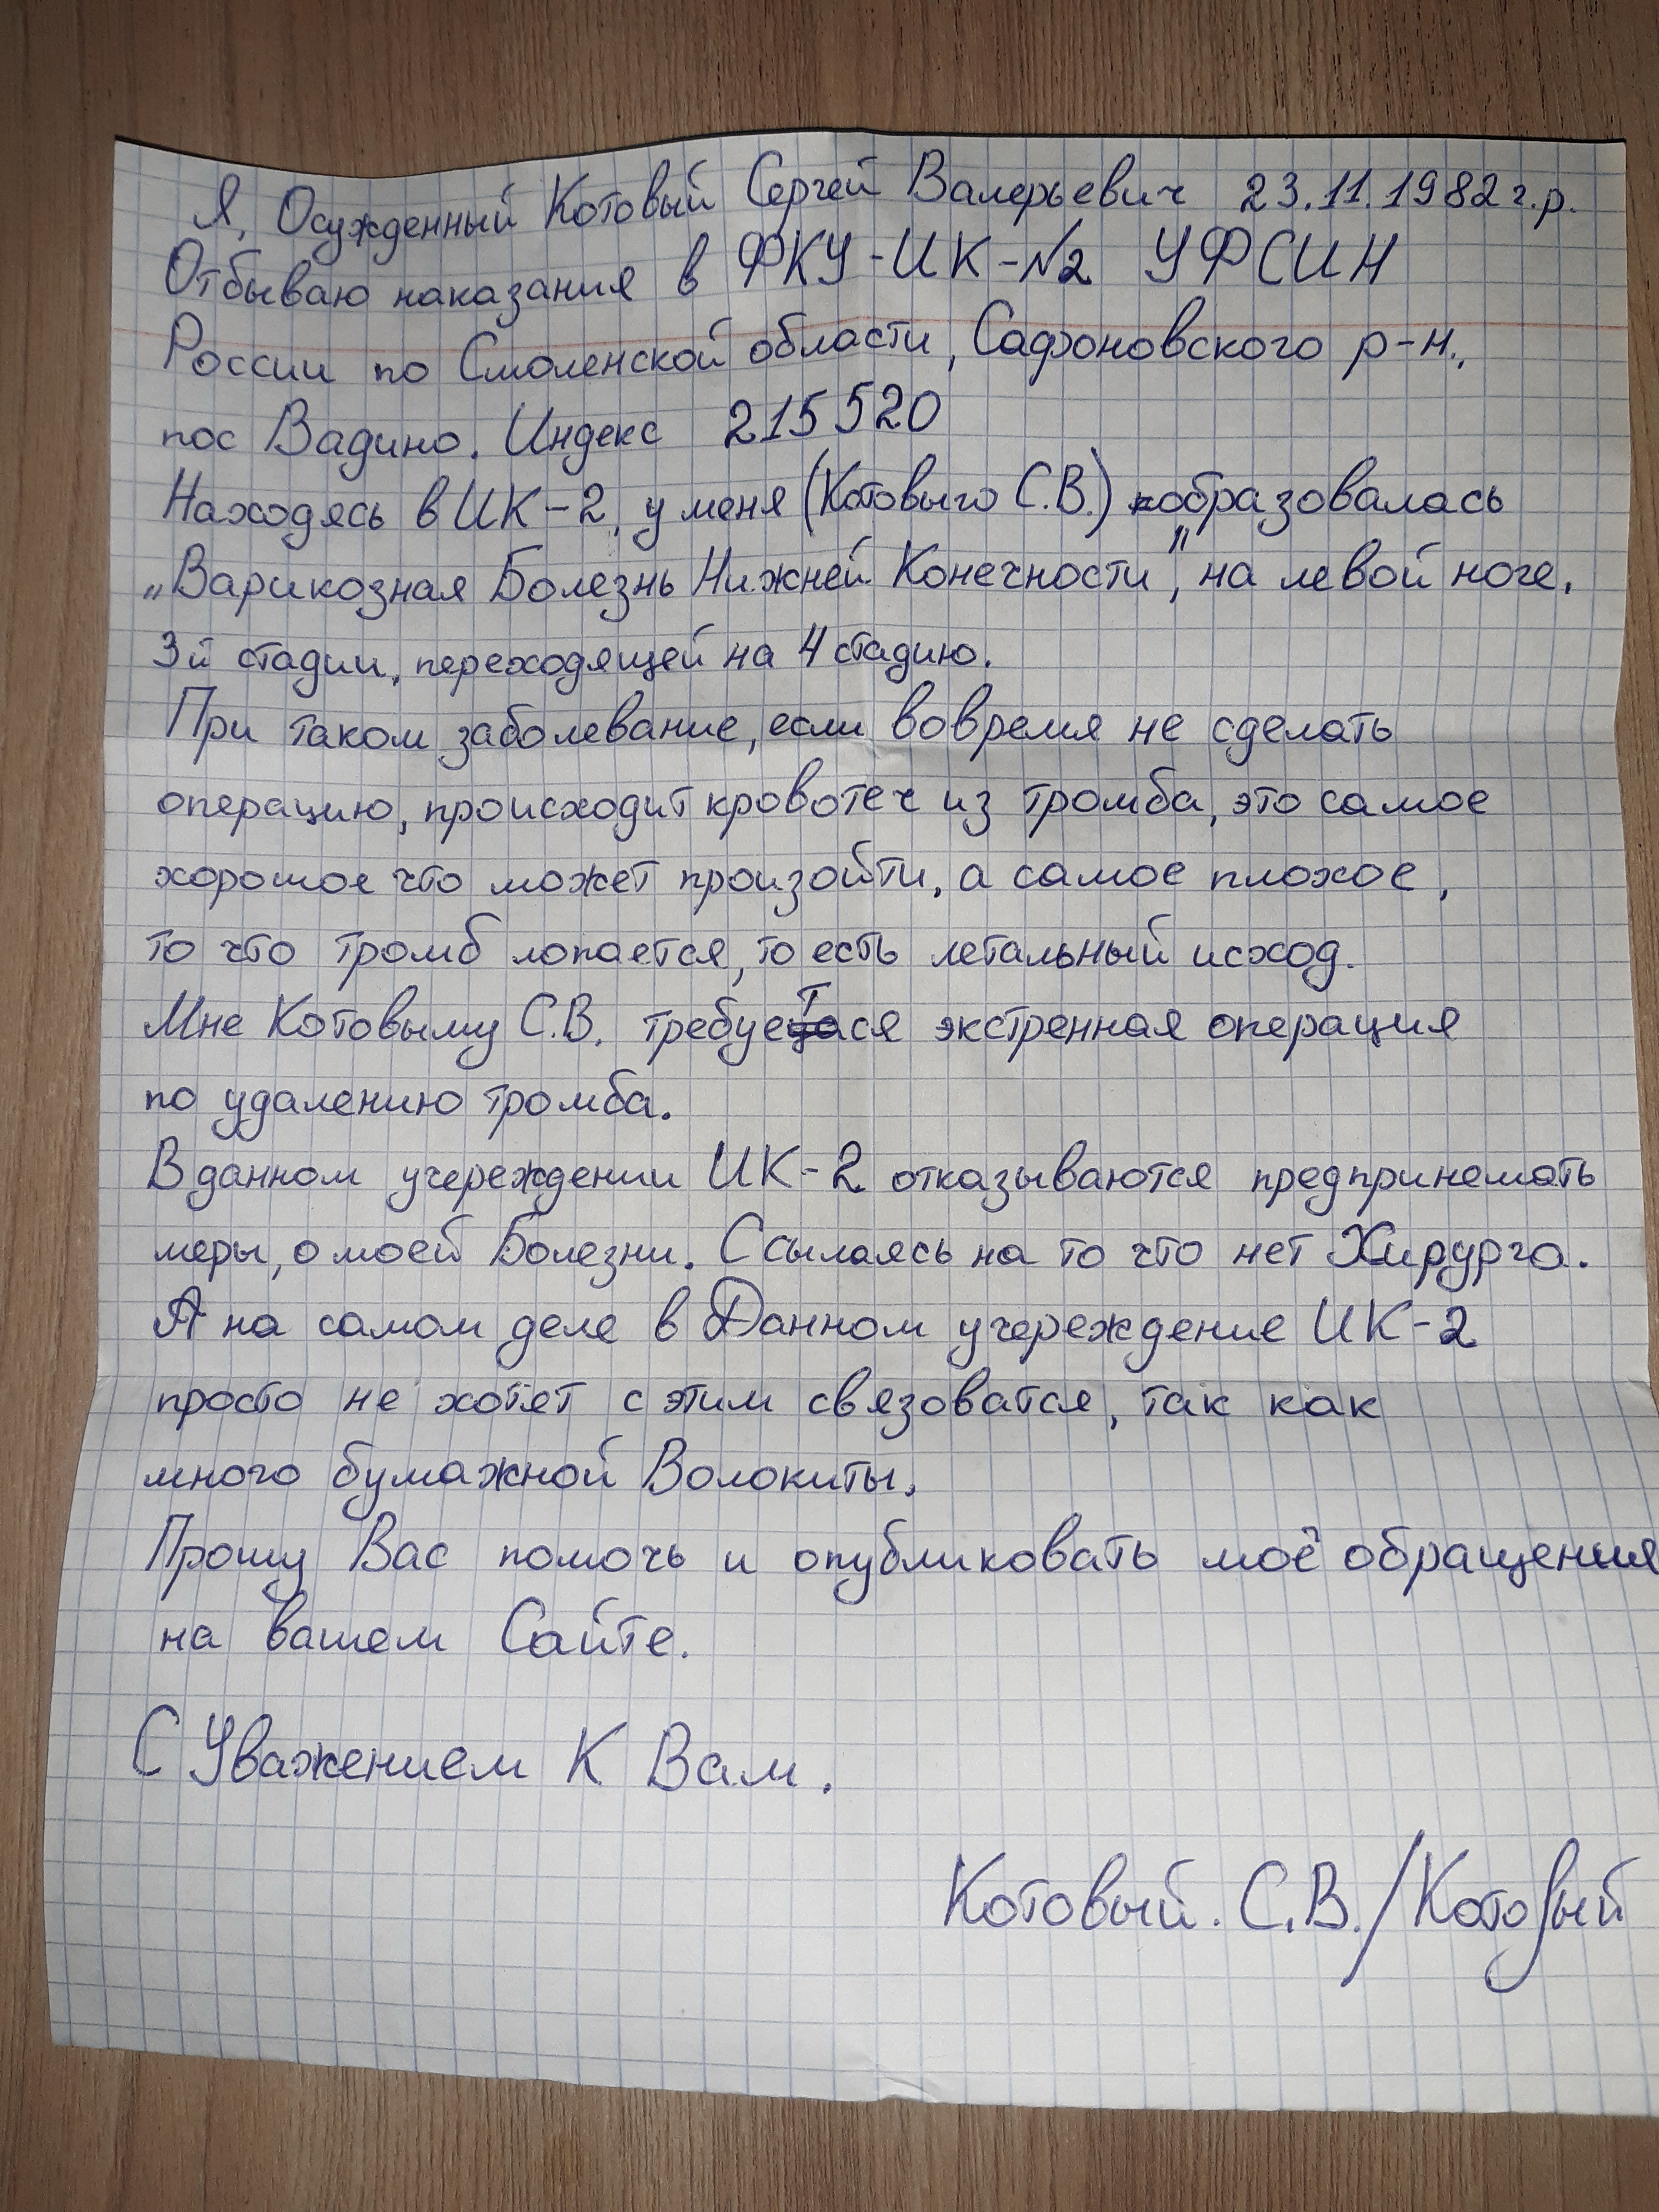 Я, Осужденный Котовый Сергей Валерьевич 23.11.1982г.р.
Отбываю наказания в ФКУ-ИК-№2 УФСИН
России по Смоленской области, Сафоновского р-н.,
пос Вадино. Индекс 215520
Находясь в ИК-2, у меня (Котовыго С.В.) образовалась
„Варикозная Болезнь Нижней Конечности", на левой ноге.
3й стадии, переходящей на 4 стадию.
При таком заболевание, если вовремя не сделать
операцию, происходит кровотеч из тромба, это самое
хорошое что может произойти, а самое плохое,
то что тромб лопается, то есть летальный исход.
Мне Котовыму С.В. требуется экстренная операция
по удалению тромба.
В данном учереждении ИК-2 отказываются предпринемать
меры, о моей Болезни. Ссылаясь на то что нет Хирурга.
А на самом деле в Данном учереждение ИК-2
просто не хотят с этим связоватся, так как
много бумажной Волокиты.
Прошу Вас помочь и опубликовать моё обращения
на вашем Сайте.
С Уважением К Вам.
Котовый. С.В./Котовый